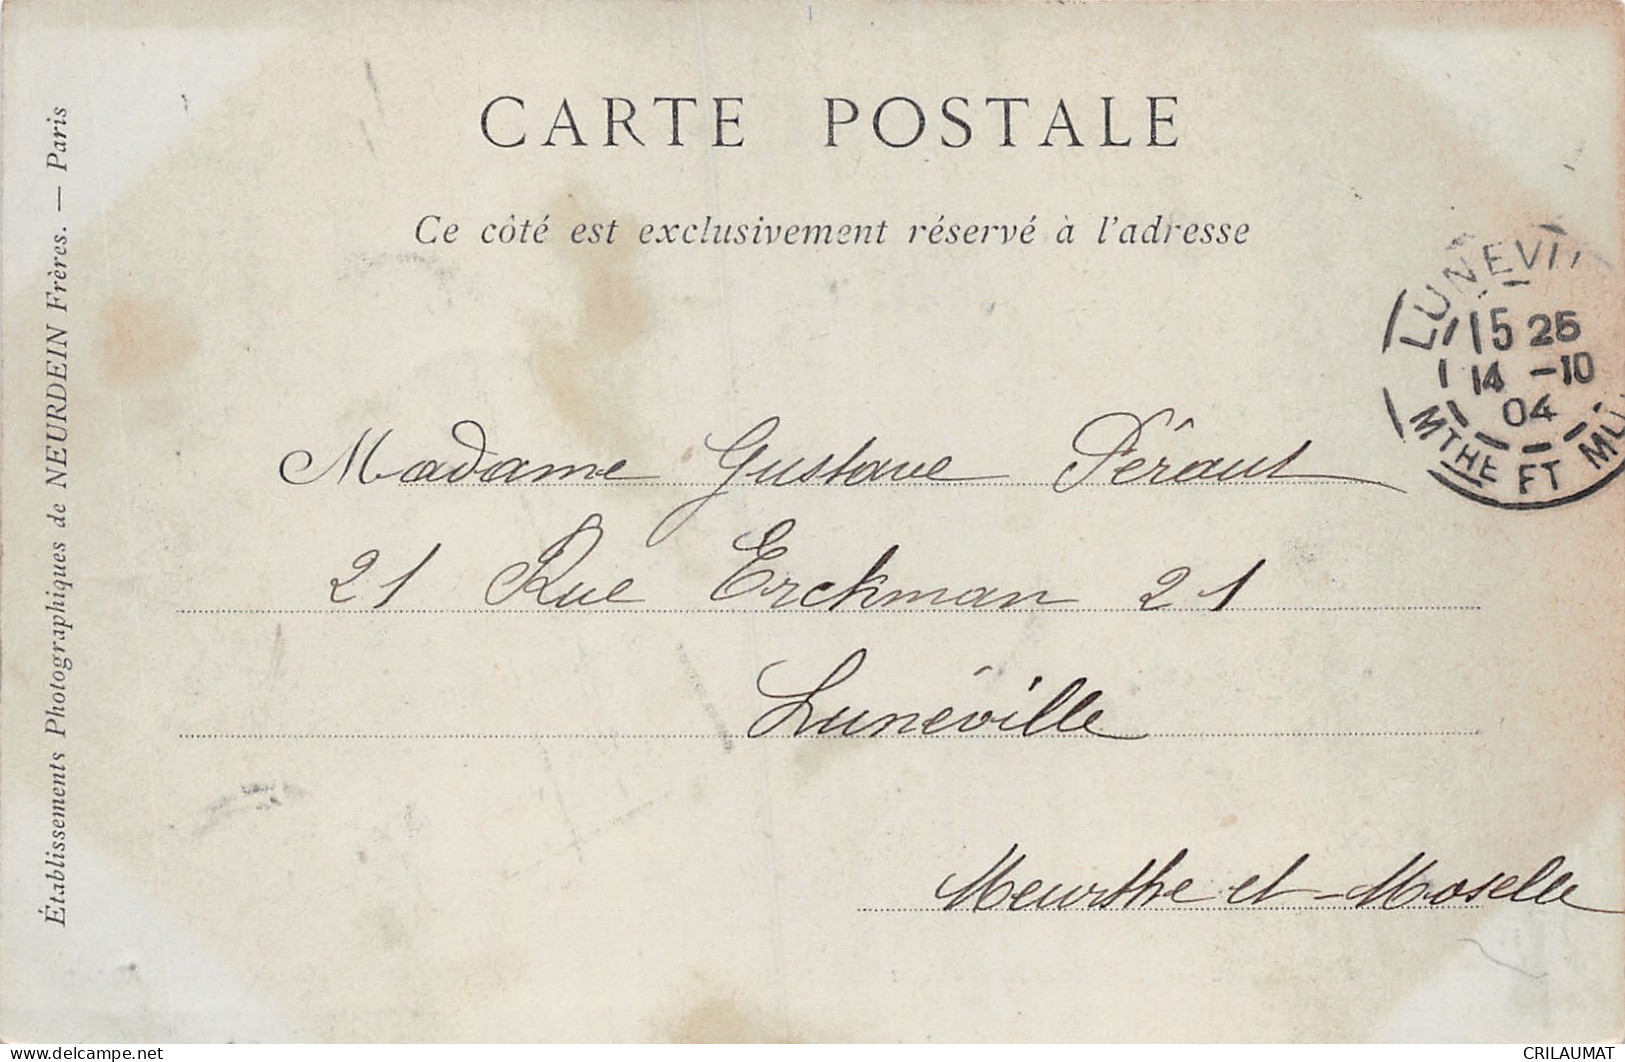 CARTE POSTALE
Ce côté est exclusivement réservé à l'adresse
Établissements Photographiques de NEURDEIN Frères. — Paris
LUNEVI
15 25
14 -10
04
MTHE ET M
Madame Gustave Féraut
21 Rue Erckman 21
Lunéville
Meurthe et-Moselle
www.delcampe.net
CRILAUMAT